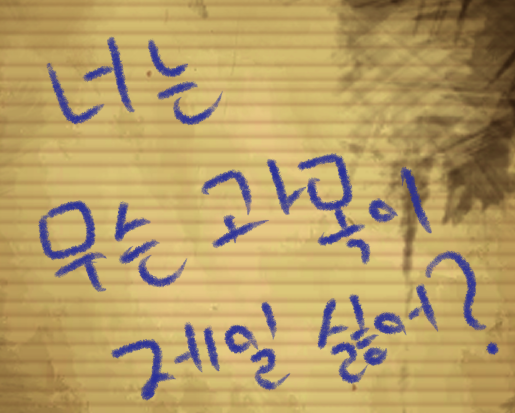 너는
무슨 과목이
제일 싫어?